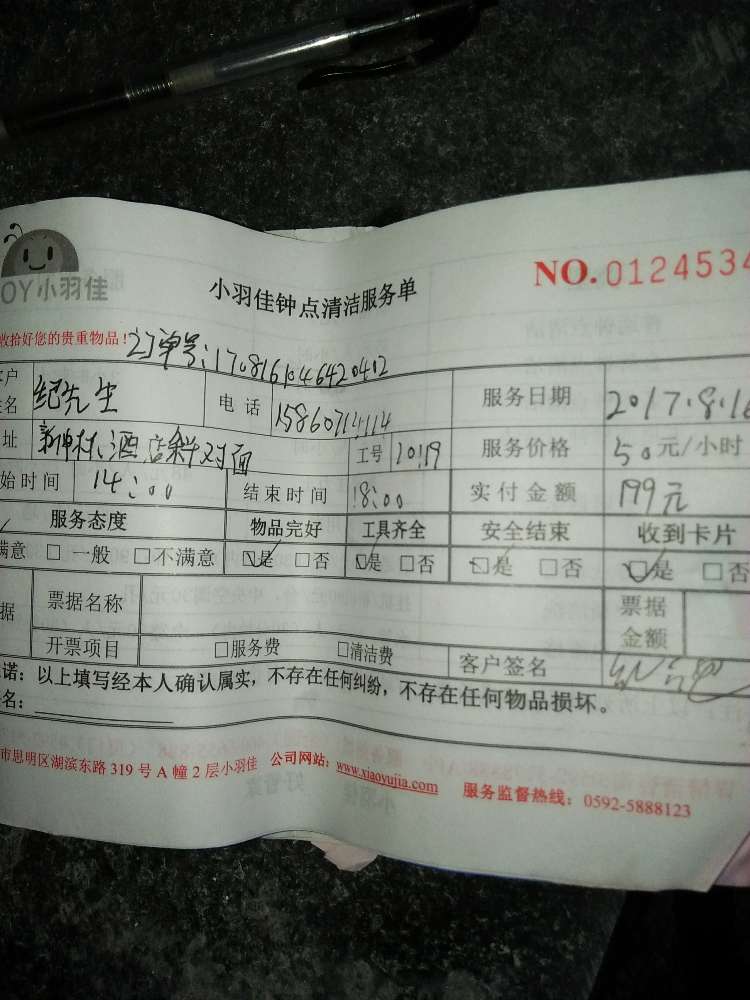 OY小羽佳
小羽佳钟点清洁服务单
NO.0124534
收拾好您的贵重物品!
订单号:1708161046420402
客户姓名 纪先生 电话 服务日期 2017.8.16
址 酒店斜对面 工号 服务价格 50元/小时
始时间 14:00 结束时间 18:00 实付金额 199元
服务态度 物品完好 工具齐全 安全结束 收到卡片
满意 □一般 □不满意 ☑是 □否 ☑是 □否 ☑是 □否 ☑是 □否
据 票据名称 票据金额
开票项目 □服务费 □清洁费 客户签名
诺:以上填写经本人确认属实,不存在任何纠纷,不存在任何物品损坏。
名:
市思明区湖滨东路319号A幢2层小羽佳 公司网站:www.xiaoyujia.com 服务监督热线:0592-5888123